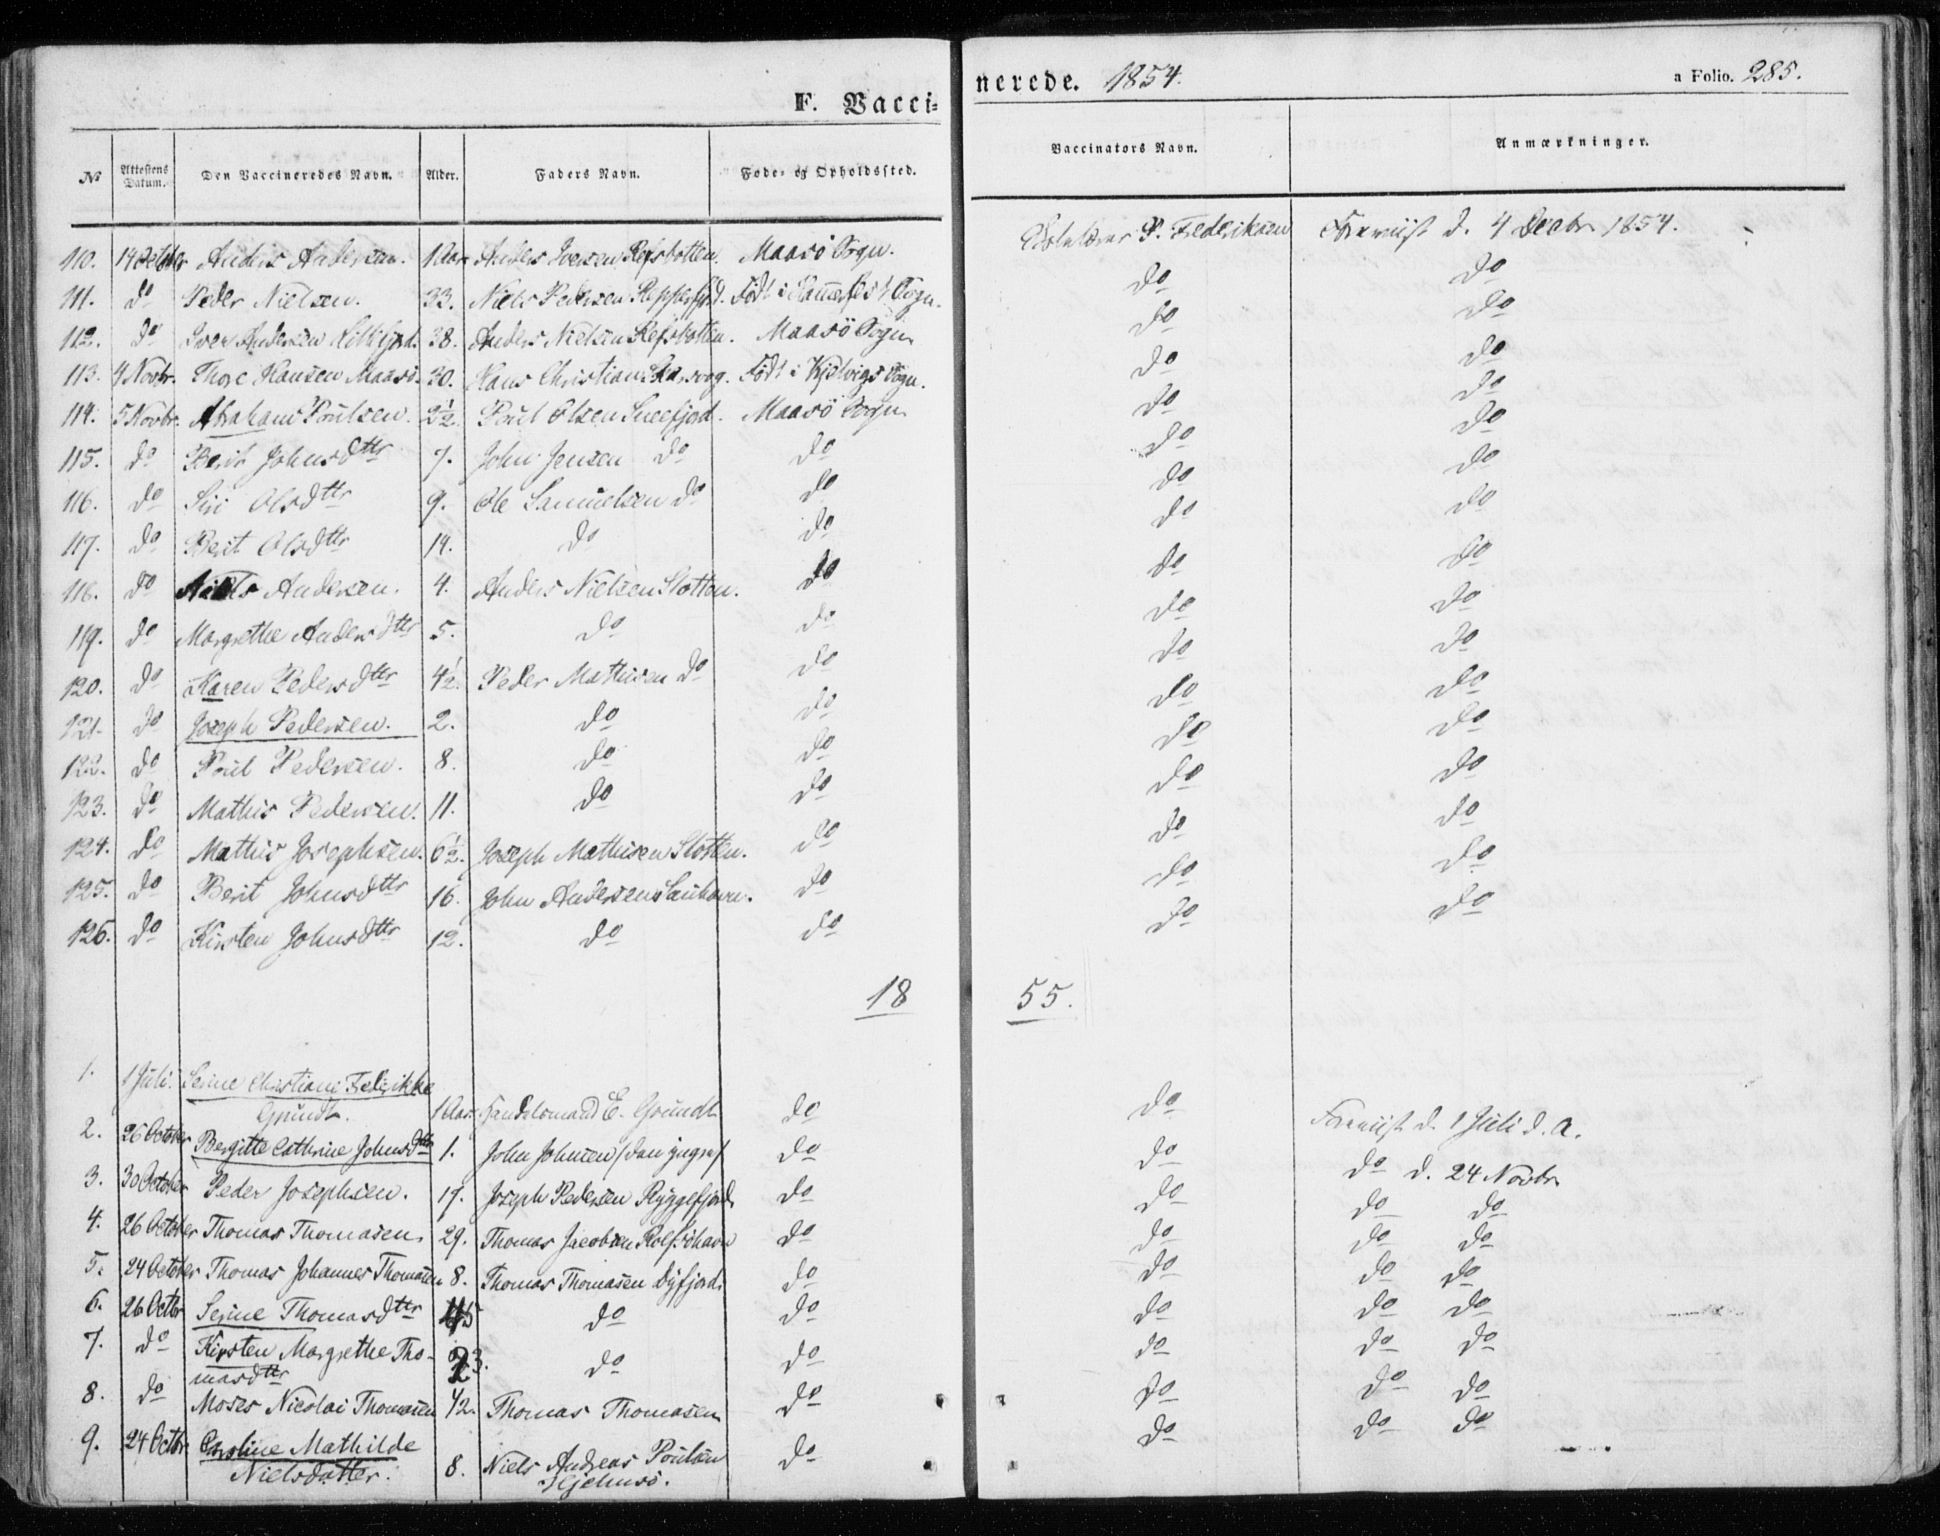 F. Vacci-
nerede. 1854.
a Folio. 285.
No Attestens Datum. Den Vaccineredes Navn. Alder. Faders Navn. Føde- og Opholdssted. Vaccinators Navn. Anmærkninger.
110. 14 Octbr Anders Andersen. 1 Aar Anders Iversen Refsbotten. Maasö Sogn. P. Frederiksen Foreviist d. 4 Decbr 1854.
111. do Peder Nielsen. 33. Niels Pedersen Repperfjd. Födt i Hammerfest Sogn. do do
112. do Iver Andersen Lillefjrd. 38. Anders Nielsen Refsbotten. Maasö Sogn do do
113. 4 Novbr. Thore Hansen Maasö. 30. Hans Christian Födt i Kjelvigs Sogn. do do
114. 5 Novbr. Abraham Poulsen. 2½. Poul Olsen Sneefjord. Maasö Sogn do do
115. do Berit Johnsdttr 7. John Jensen do do do do
116. do Siri Olsdttr 9. Ole Samuelsen do do do do
117. do Berit Olsdttr 14. do do do do
118. do Niels Andersen. 4. Anders Nielsen Slotten. do do do
119. do Margrethe Andersdttr 5. do do do do
120. do Karen Pedersdttr 4½. Peder Mathisen do do do do
121. do Joseph Pedersen. 2. do do do do
122. do Poul Pedersen. 8. do do do do
123. do Mathis Pedersen. 11. do do do do
124. do Mathis Josephsen. 6½. Joseph Mathisen Slotten. do do do
125. do Berit Johnsdttr 16. John Andersen Sauhavn. do do do
126. do Kirsten Johnsdttr 12. do do do do
18 55.
1. 1 Juli. Serine Christiane Fredrikke
Grundt. 1 Aar. Handelsmand E. Grundt do do Foreviist d. 1 Juli d. A.
2. 26 October Bergitte Cathrine Johnsdttr 1. John Johnsen do do do d. 24 Novbr
3. 30 October Peder Josephsen. 17. Joseph Pedersen Ryggefjord do do do do
4. 26 October Thomas Thomasen. 29. Thomas Jacobsen Rolfsöhavn do do do do
5. 24 October Thomas Johannes Thomasen 8. Thomas Thomasen Dyfjord. do do do do
6. 26 Octbr Serine Thomasdttr 5 do do do do do
7. do Kirsten Margrethe Tho-
masdttr 3. do do do do do
8. do Moses Nicolai Thomasen ½. Thomas Thomasen do do do do
9. 24 Octbr Caroline Mathilde
Nielsdatter. 8. Niels Andreas Poulsen
Hjelmsö. do do do do